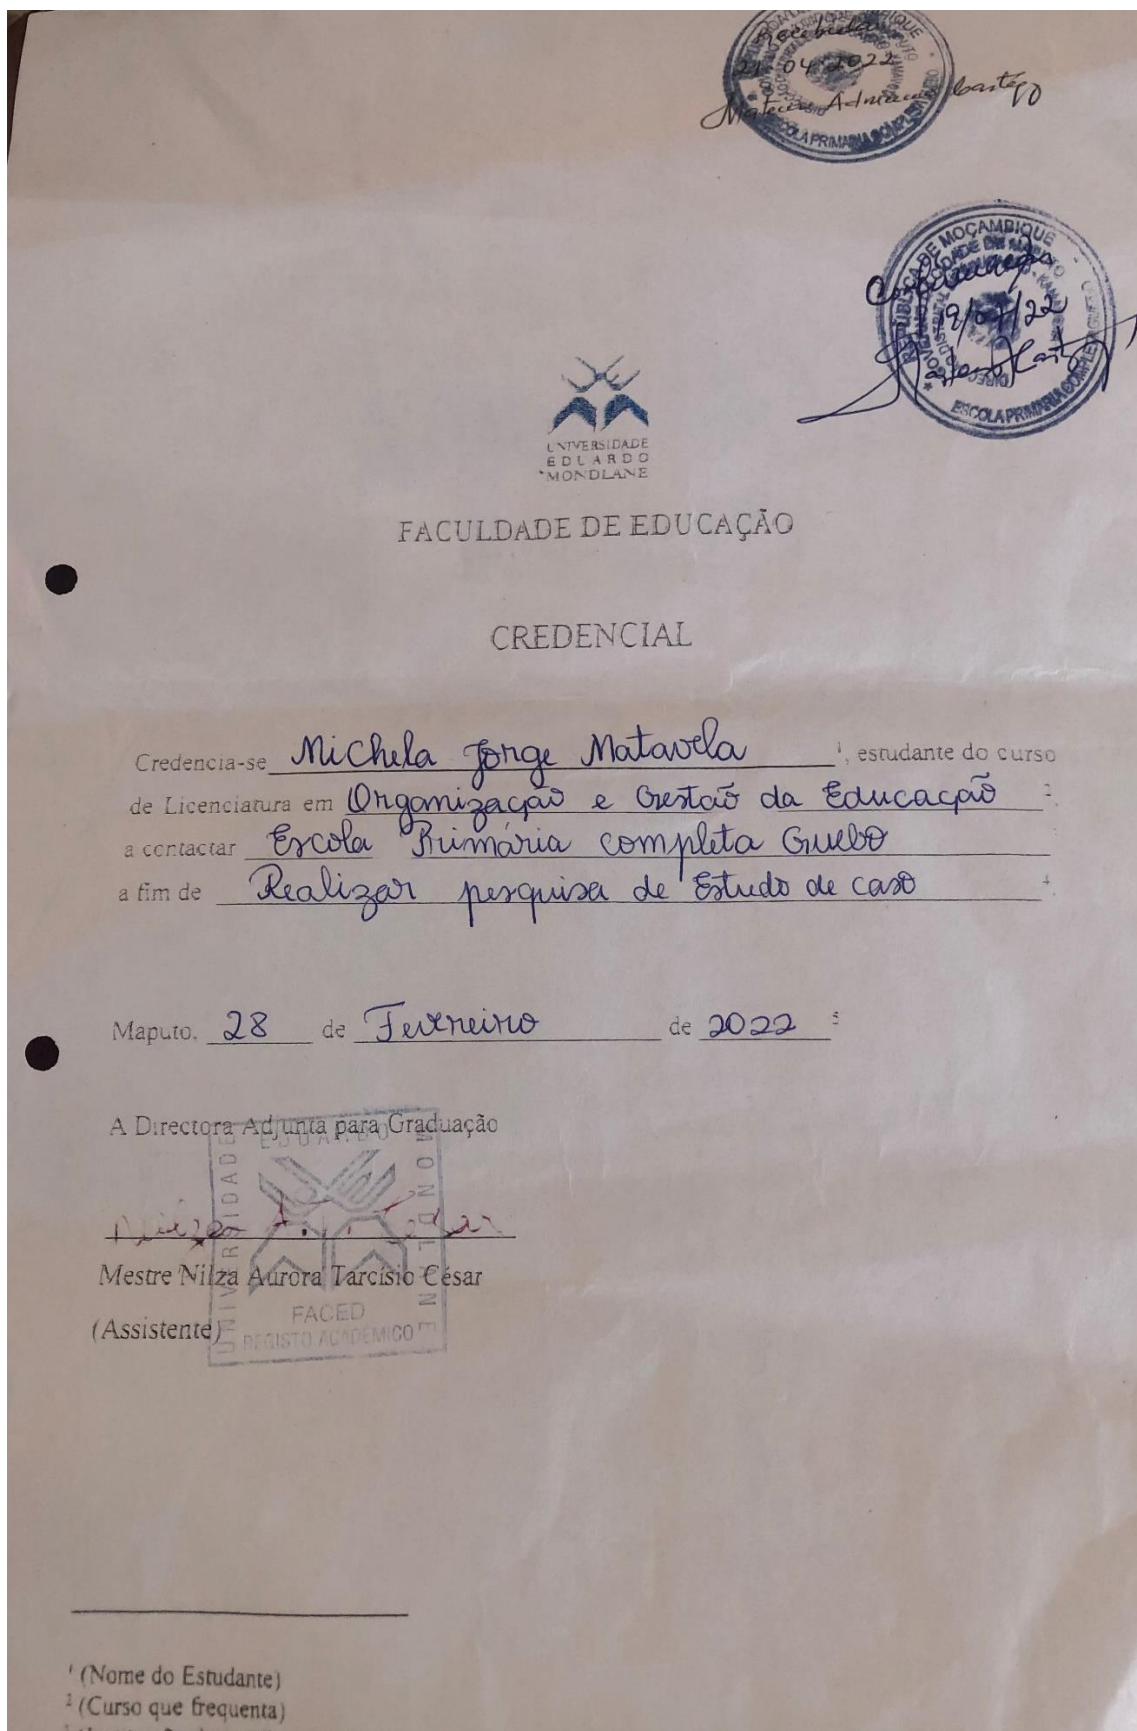 Recebida
21.04.2022
REPÚBLICA DE MOÇAMBIQUE
19/07/22
ESCOLA PRIMARIA COMPLETA
UNIVERSIDADE
EDUARDO
MONDLANE
FACULDADE DE EDUCAÇÃO
CREDENCIAL
Credencia-se Michela Jorge Matavela ¹, estudante do curso
de Licenciatura em Organização e Gestão da Educação ²
a contactar Escola Primária completa Guebo
a fim de Realizar pesquisa de Estudo de caso ⁴
Maputo, 28 de Fevereiro de 2022 ⁵
A Directora Adjunta para Graduação
UNIVERSIDADE EDUARDO MONDLANE
Mestre Nilza Aurora Tarcísio César
(Assistente)
FACED
REGISTO ACADÉMICO
¹ (Nome do Estudante)
² (Curso que frequenta)